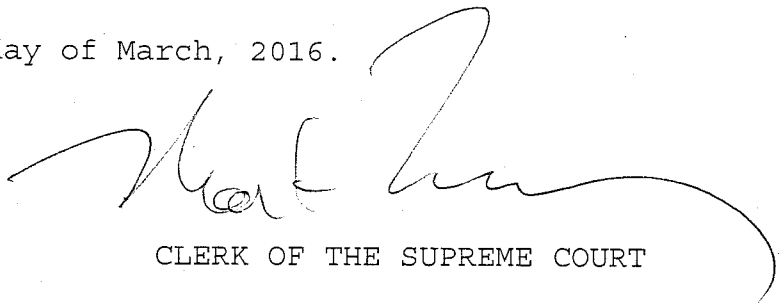 ay of March, 2016.
CLERK OF THE SUPREME COURT